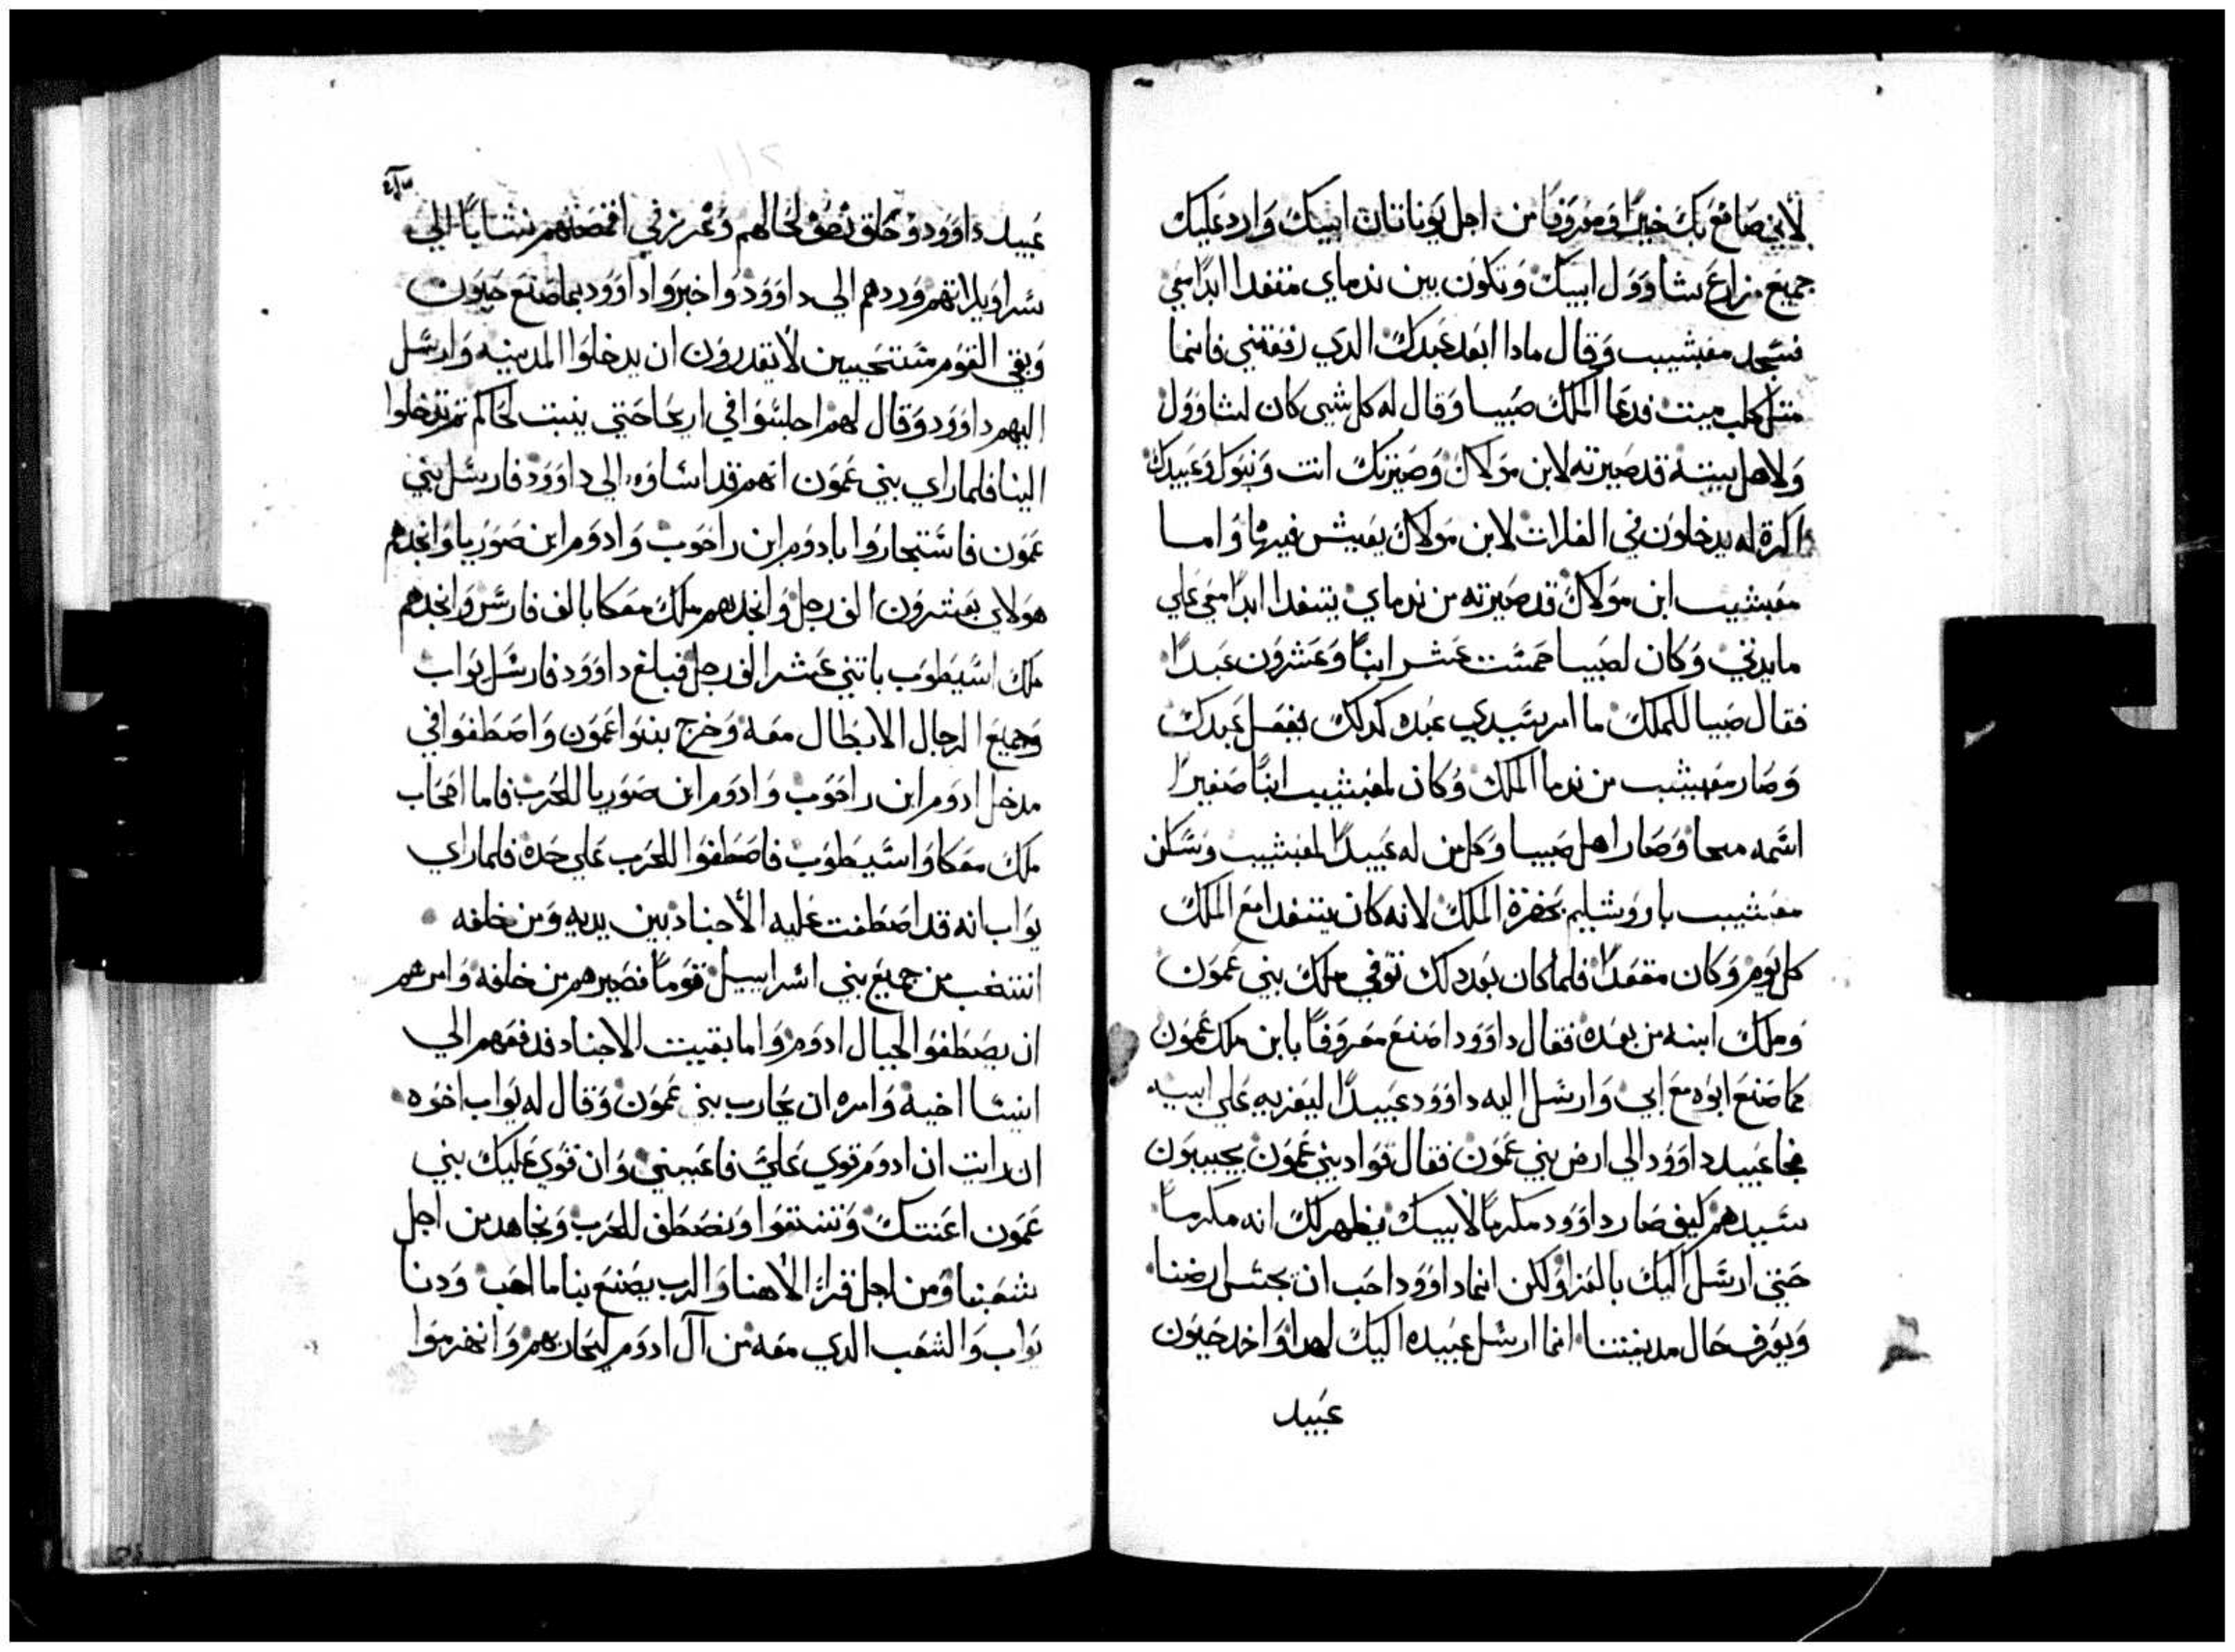 لأني صانع بك خيرًا ومعروفًا من اجل يوناتان ابيك وارد عليك
جميع مزارع شاوول ابيك وتكون بين ندماي متغدا ابدًا معي
فسجد مفبشيب وقال مادا ابعد عبدك الدي رفعتني فانما
متل كلب ميت فدعا الملك صيبا وقال له كل شي كان لشاوول
ولاهل بيته قد صيرته لابن مولاك وصيرتك انت وبنوك وعبيدك
اكرة له يدخلون في الغلات لابن مولاك يعيش فيها واما
مفبشيب ابن مولاك قد صيرته من ندماي يتغدا ابدًا معي علي
مايدتي وكان لصيبا خمست عشر ابنًا وعشرون عبدًا
فقال صيبا للملك ما امر سيدي عبده كدلك يفعل عبدك
وصار مفبشيب من ندما الملك وكان لمفبشيب ابنًا صغيرًا
اسمه ميحا وصار اهل صيبا وكل من له عبيدًا لمفبشيب وسكن
مفبشيب باروشليم بحضرة الملك لانه كان يتغدا مع الملك
كل يوم وكان مقعدًا فلما كان بعد دلك توفي ملك بني عمون
وملك ابنه من بعده فقال داوود اصنع معروفًا بابن ملك عمون
كما صنع ابوه مع ابي وارسل اليه داوود عبيدًا ليعزيه علي ابيه
فجا عبيد داوود الي ارض بني عمون فقال قواد بني عمون يجيبون
سيدهم كيف صار داوود مكرمًا لابيك يظهر لك انه مكرمًا
حتي ارسل اليك بالعزا ولكن انما داوود احب ان يجتس ارضنا
ويعرف حال مدينتنا انما ارسل عبيده اليك لهدا واخد حيون
عبيد
عبيد داوود وحلق نصف لحالهم وغرز في اقمصتهم نشابًا الي
سراويلاتهم وردهم الي داوود واخبروا داوود بما صنع حيون
وبقي القوم مستحيين لا يقدرون ان يدخلوا المدينه وارسل
اليهم داوود وقال لهم اجلسوا في اريحا حتي ينبت لحاكم تم تدخلوا
الينا فلما راي بني عمون انهم قد اساوه الي داوود فارسل بني
عمون فاستجاروا بادوم ابن راحوب وادوم ابن صوريا وانجدهم
هولاي بعشرون الف رجل وانجدهم ملك معكا بالف فارس وانجدهم
ملك اسيطوب باتني عشر الف رجل فبلغ داوود فارسل يواب
وجميع الرجال الابطال معه وخرج بنوا عمون واصطفوا في
مدخل ادوم ابن راحوب وادوم ابن صوريا للحرب فاما اصحاب
ملك معكا واسيطوب فاصطفوا للحرب علي حده فلما راي
يواب انه قد اصطفت عليه الأجناد بين يديه ومن خلفه
انتخب من جميع بني اسراييل قومًا فصيرهم من خلفه وامرهم
ان يصطفوا لحيال ادوم واما بقيت الاجناد فدفعهم الي
ابيشا اخيه وامره ان يحارب بني عمون وقال له يواب اخوه
ان رايت ان ادوم قوي عليّ فاعيني وان قوي عليك بني
عمون اعنتك ونصطف للحرب ونجاهد من اجل
شعبنا ومن اجل قراء الاهنا والرب يصنع بنا ما احب ودنا
يواب والشعب الدي معه من آل ادوم ليحاربهم وانهزموا